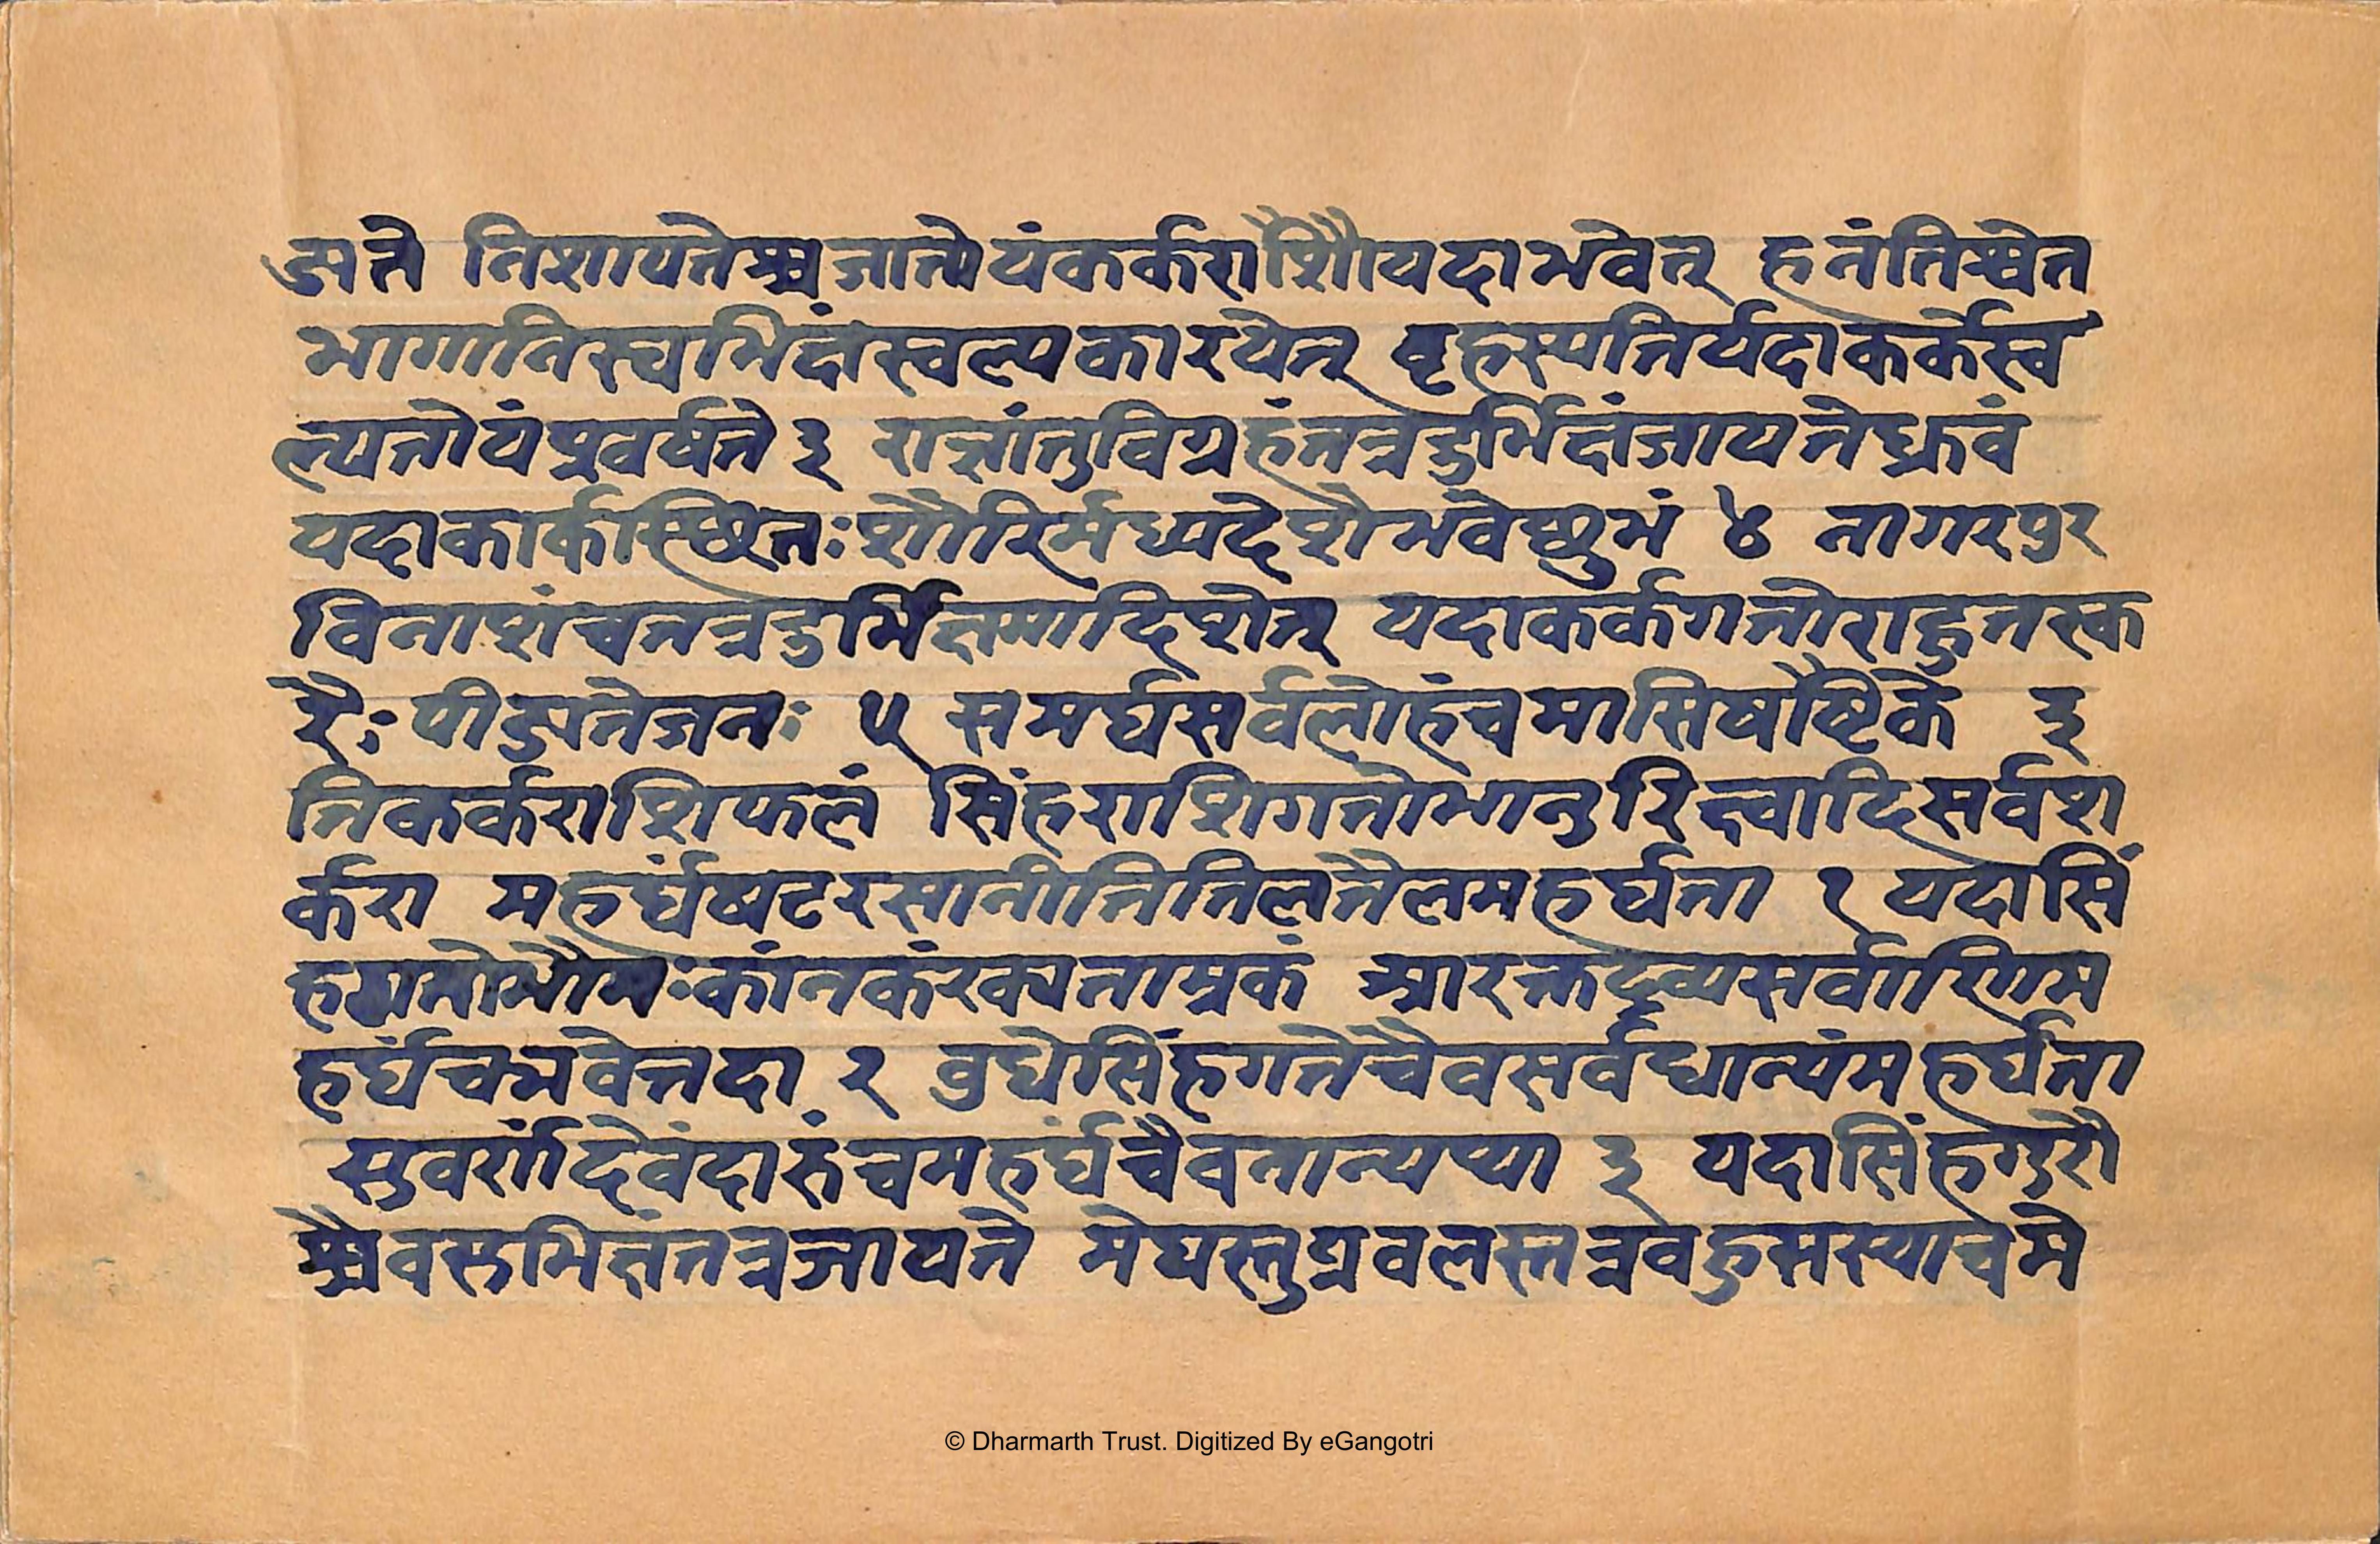 ड्यते निशापतेश्च जातोयंकर्कराशौयदाभवेत् हनंतिश्वेत
भागानिस्वभिक्षंस्वल्पकारयेत् वृहस्पतिर्यदाकर्केस्व
ल्पतोयंप्रवर्षते ३ राज्ञांतुविग्रहंतत्रदुर्भिक्षंजायतेध्रुवं
यदाकार्कस्थितःशौरिर्मध्यदेशेभवेष्शुभं ४ नागरपुर
विनाशंचतत्रदुर्भिक्षमादिशेत् यदाकर्कगतोराहुतस्क
रैःपीड्यतेजनः ५ समर्घसर्वलोहंचमासिषौष्टिके इ
तिकर्कराशिफलं सिंहराशिगतोभानुरिक्ष्वादिसर्वश
र्करा महर्घंषटरसानीतितिलतैलमहर्घता १ यदासिं
हग्रमोभौमःकांनकंरक्यताम्रकं आरक्तद्रव्यसर्वाणिम
हर्घंचभवेत्तदा २ वुधेसिंहगतेचैवसर्वधान्यंमहर्घता
सुवर्णादिवंदारुंचमहर्घंचैवनान्यप्था ३ यदासिंहगुरौ
श्चैवसुभिक्षंतत्रजायते मेघस्तुप्रवलस्तत्रवहुसस्याचमे
© Dharmarth Trust. Digitized By eGangotri